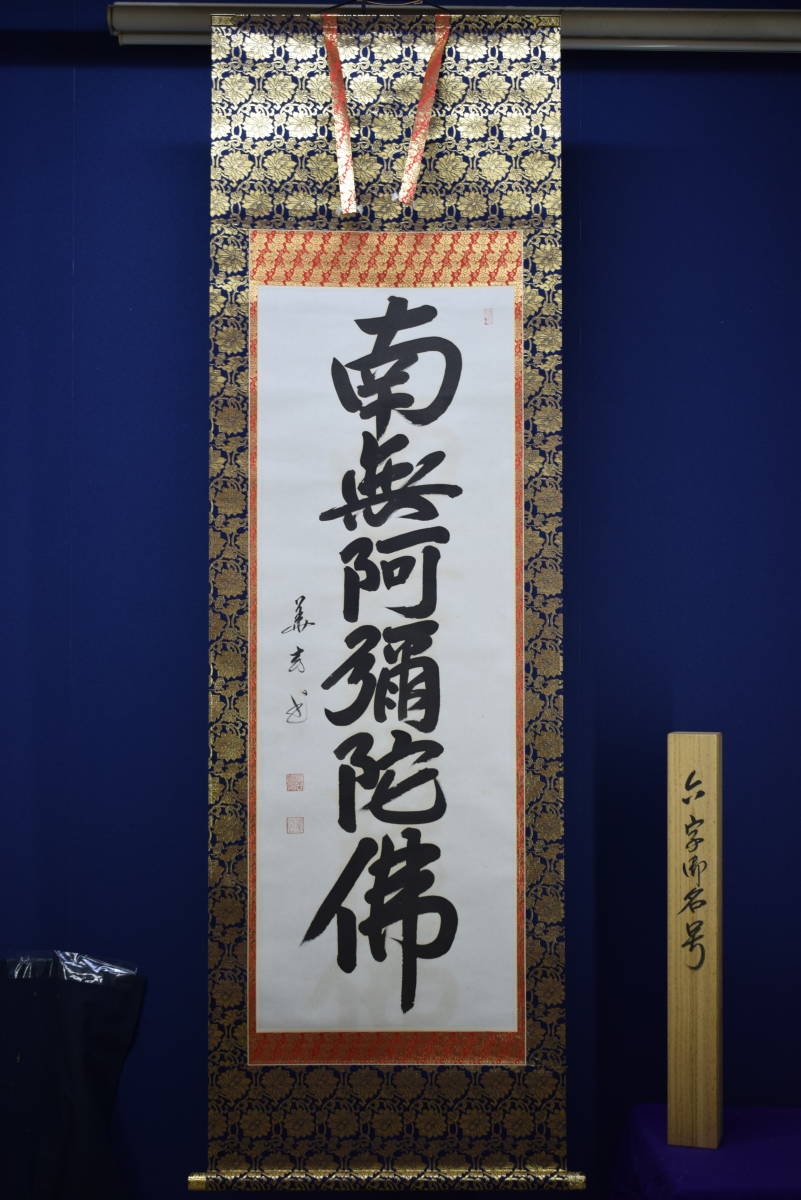 南無阿彌陀佛
書
六字御名号